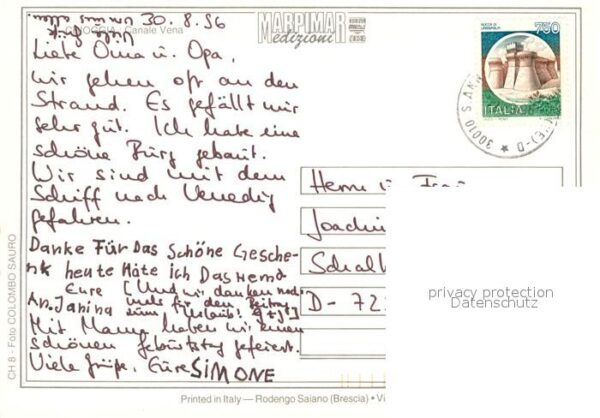 30.8.96
CHIOGGIA - Canale Vena
MARPIMAR
edizioni
Liebe Oma u. Opa,
wir gehen oft an den
Strand. Es gefällt mir
sehr gut. Ich habe eine
schöne Burg gebaut.
Wir sind mit dem
Schiff nach Venedig
gefahren.
Danke Für Das Schöne Gesche-
nk heute Häte ich Das Hemd
An. Janina
Eure [Und wir danken noch-
mals für den Beitrag
zum Urlaub!
Mit Mama haben wir einen
schönen Geburtstag gefeiert.
Viele Grüße, Eure SIMONE
CH 8 - Foto COLOMBO SAURO
Printed in Italy — Rodengo Saiano (Brescia) •
ROCCA DI
750
ITALIA
30010 S. ANN
(VE)-D
Herrn u. Frau
Joachim
Schal
D-72
privacy protection
Datenschutz